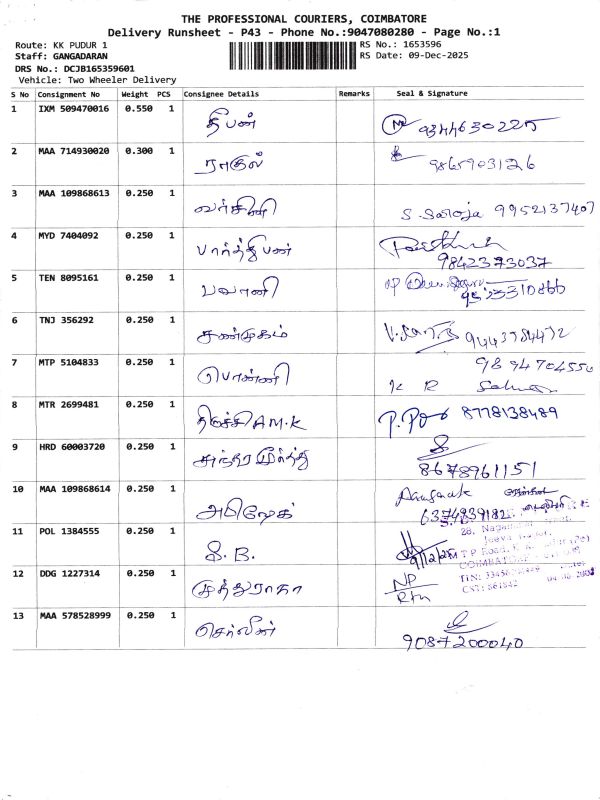 THE PROFESSIONAL COURIERS, COIMBATORE
Delivery Runsheet - P43 - Phone No.:9047080280 - Page No.:1
Route: KK PUDUR 1 RS No.: 1653596
Staff: GANGADARAN RS Date: 09-Dec-2025
DRS No.: DCJB165359601
Vehicle: Two Wheeler Delivery
S No Consignment No Weight PCS Consignee Details Remarks Seal & Signature
1 IXM 509470016 0.550 1 தீபன் 9344630225
2 MAA 714930020 0.300 1 ராகுல் 9865903126
3 MAA 109868613 0.250 1 வர்சினி S. Saroja 9952137407
4 MYD 7404092 0.250 1 பார்த்திபன்
9842373037
5 TEN 8095161 0.250 1 பவானி
6 TNJ 356292 0.250 1 சண்முகம் 9443784472
7 MTP 5104833 0.250 1 பொன்னி 9894704550
8 MTR 2699481 0.250 1 திருச்சி A.M.K 8778138489
9 HRD 60003720 0.250 1
8678961151
10 MAA 109868614 0.250 1 அபிஷேக்
6374839182
28,
11 POL 1384555 0.250 1 S.B. 9/12/25
COIMBATORE
12 DDG 1227314 0.250 1 முத்துராகா NP
Rtn
CST: 861842
13 MAA 578528999 0.250 1 செர்லின்
9087200040